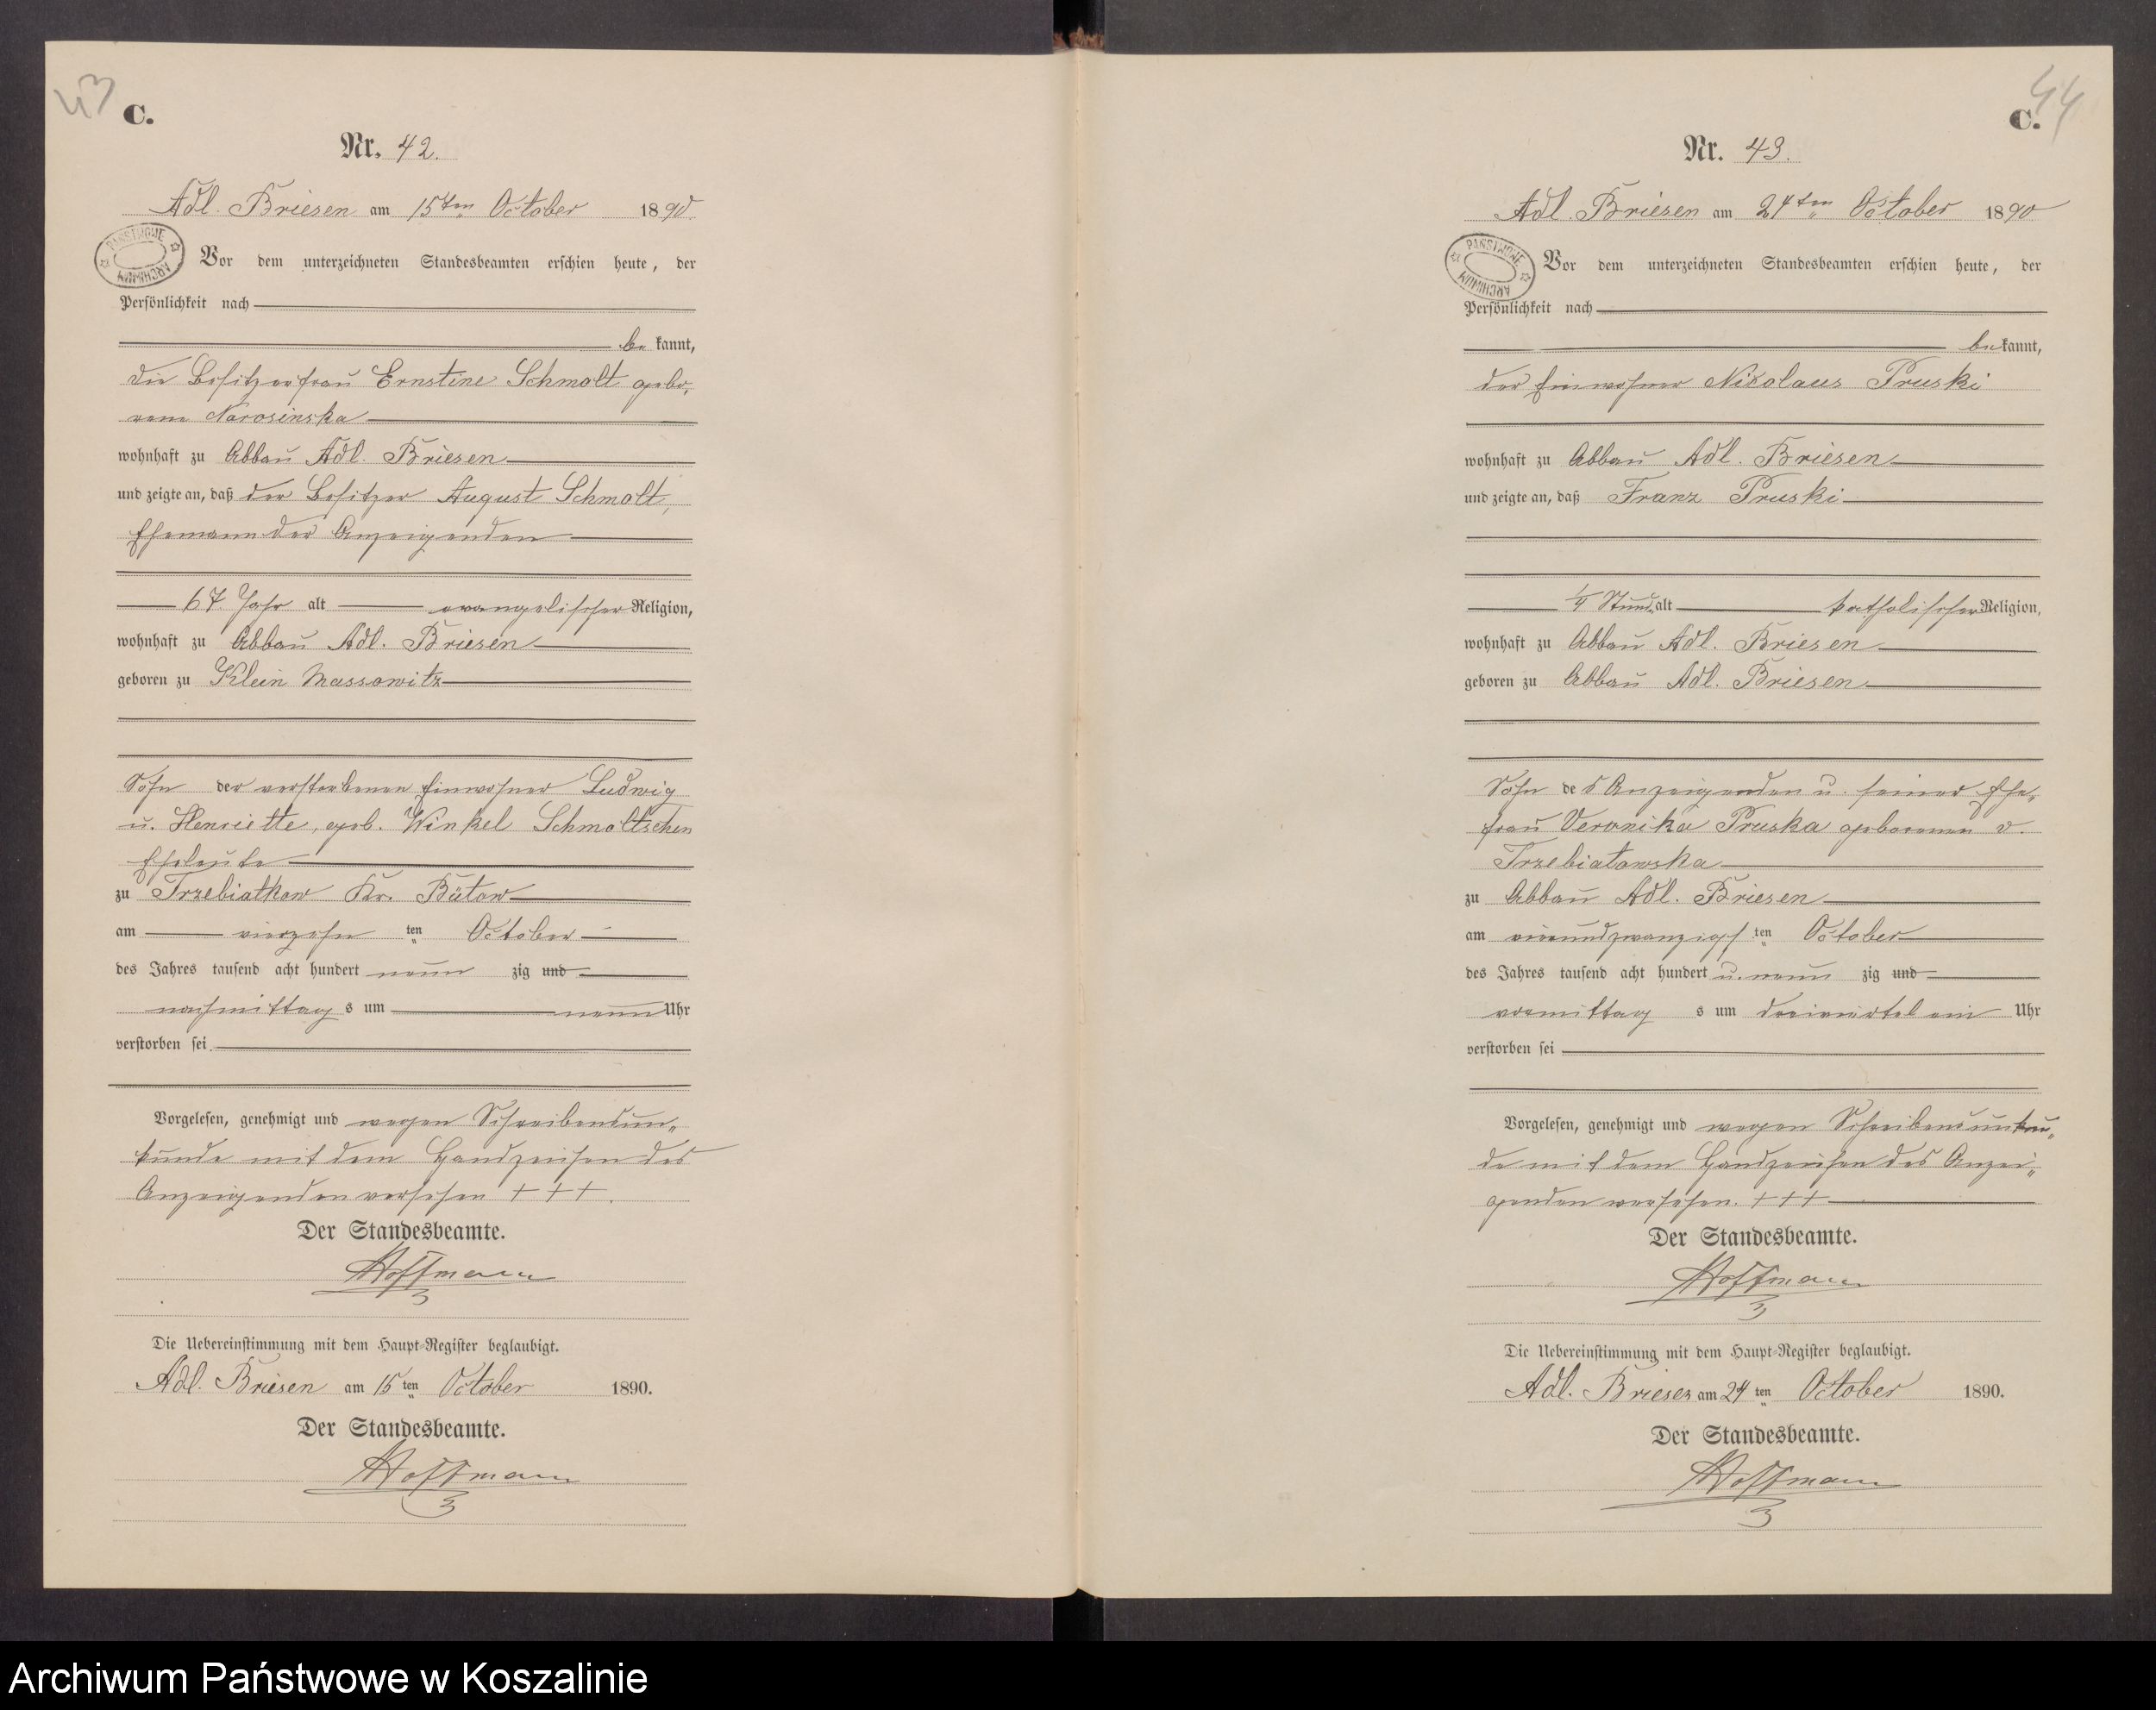 43
C.
Nr. 42.
Adl. Briesen am 15ten October 1890.
PAŃSTWOWE ARCHIWUM
Vor dem unterzeichneten Standesbeamten erschien heute, der
Persönlichkeit nach
be kannt,
die Besitzerfrau Ernstine Schmolt gebo-
rene Narosinska
wohnhaft zu Abbau Adl. Briesen
und zeigte an, daß der Besitzer August Schmolt,
Ehemann der Anzeigenden
67 Jahr alt evangelischer Religion,
wohnhaft zu Abbau Adl. Briesen
geboren zu Klein Massowitz
Sohn der verstorbenen Einwohner Ludwig
u. Henriette, geb. Winkel Schmoltschen
Eheleute
zu Trzebiatkow Kr. Bütow
am vierzehn ten October
des Jahres tausend acht hundert neun zig und
nachmittag s um neun Uhr
verstorben sei
Vorgelesen, genehmigt und wegen Schreibensun-
kunde mit dem Handzeichen des
Anzeigenden versehen + + +.
Der Standesbeamte.
Hoffmann
Die Uebereinstimmung mit dem Haupt-Register beglaubigt.
Adl. Briesen am 15 ten October 1890.
Der Standesbeamte.
Hoffmann
44
C.
Nr. 43.
Adl. Briesen am 24ten October 1890
PAŃSTWOWE ARCHIWUM
Vor dem unterzeichneten Standesbeamten erschien heute, der
Persönlichkeit nach
be kannt,
der Einwohner Nicolaus Pruski
wohnhaft zu Abbau Adl. Briesen
und zeigte an, daß Franz Pruski
1/4 Stund alt katholischer Religion,
wohnhaft zu Abbau Adl. Briesen
geboren zu Abbau Adl. Briesen
Sohn des Anzeigenden u. seiner Ehe-
frau Veronika Pruska geborenen v.
Trzebiatowska
zu Abbau Adl. Briesen
am vierundzwanzigs ten October
des Jahres tausend acht hundert u. neun zig und
vormittag s um dreiviertel ein Uhr
verstorben sei
Vorgelesen, genehmigt und wegen Schreibensunkun-
de mit dem Handzeichen des Anzei-
genden versehen. + + +
Der Standesbeamte.
Hoffmann
Die Uebereinstimmung mit dem Haupt-Register beglaubigt.
Adl. Briesen am 24 ten October 1890.
Der Standesbeamte.
Hoffmann
Archiwum Państwowe w Koszalinie